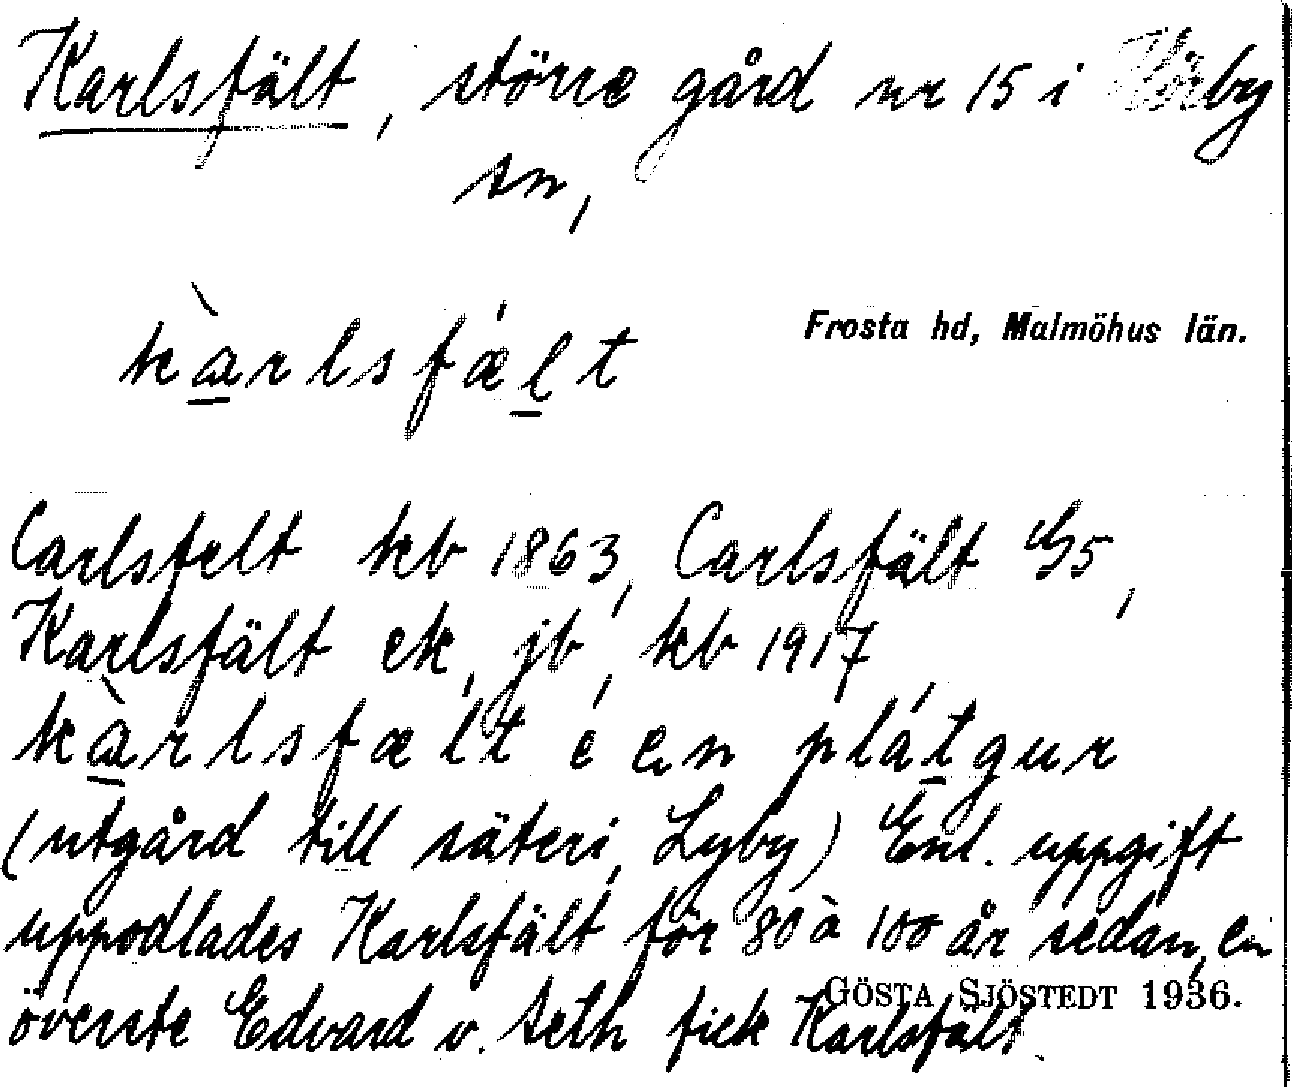 Karlsfält, större gård nr 15 i Hörby
sn,
Frosta hd, Malmöhus län.
kàrlsfǽlt
Carlsfelt kb 1863, Carlsfält G5,
Karlsfält ek, jb, kb 1917
kàrlsfælt é en plátgur
(utgård till säteri, Lyby) Enl. uppgift
uppodlades Karlsfält för 80 à 100 år sedan, en
överste Edvard v. Seth fick Karlsfält
GÖSTA SJÖSTEDT 1936.